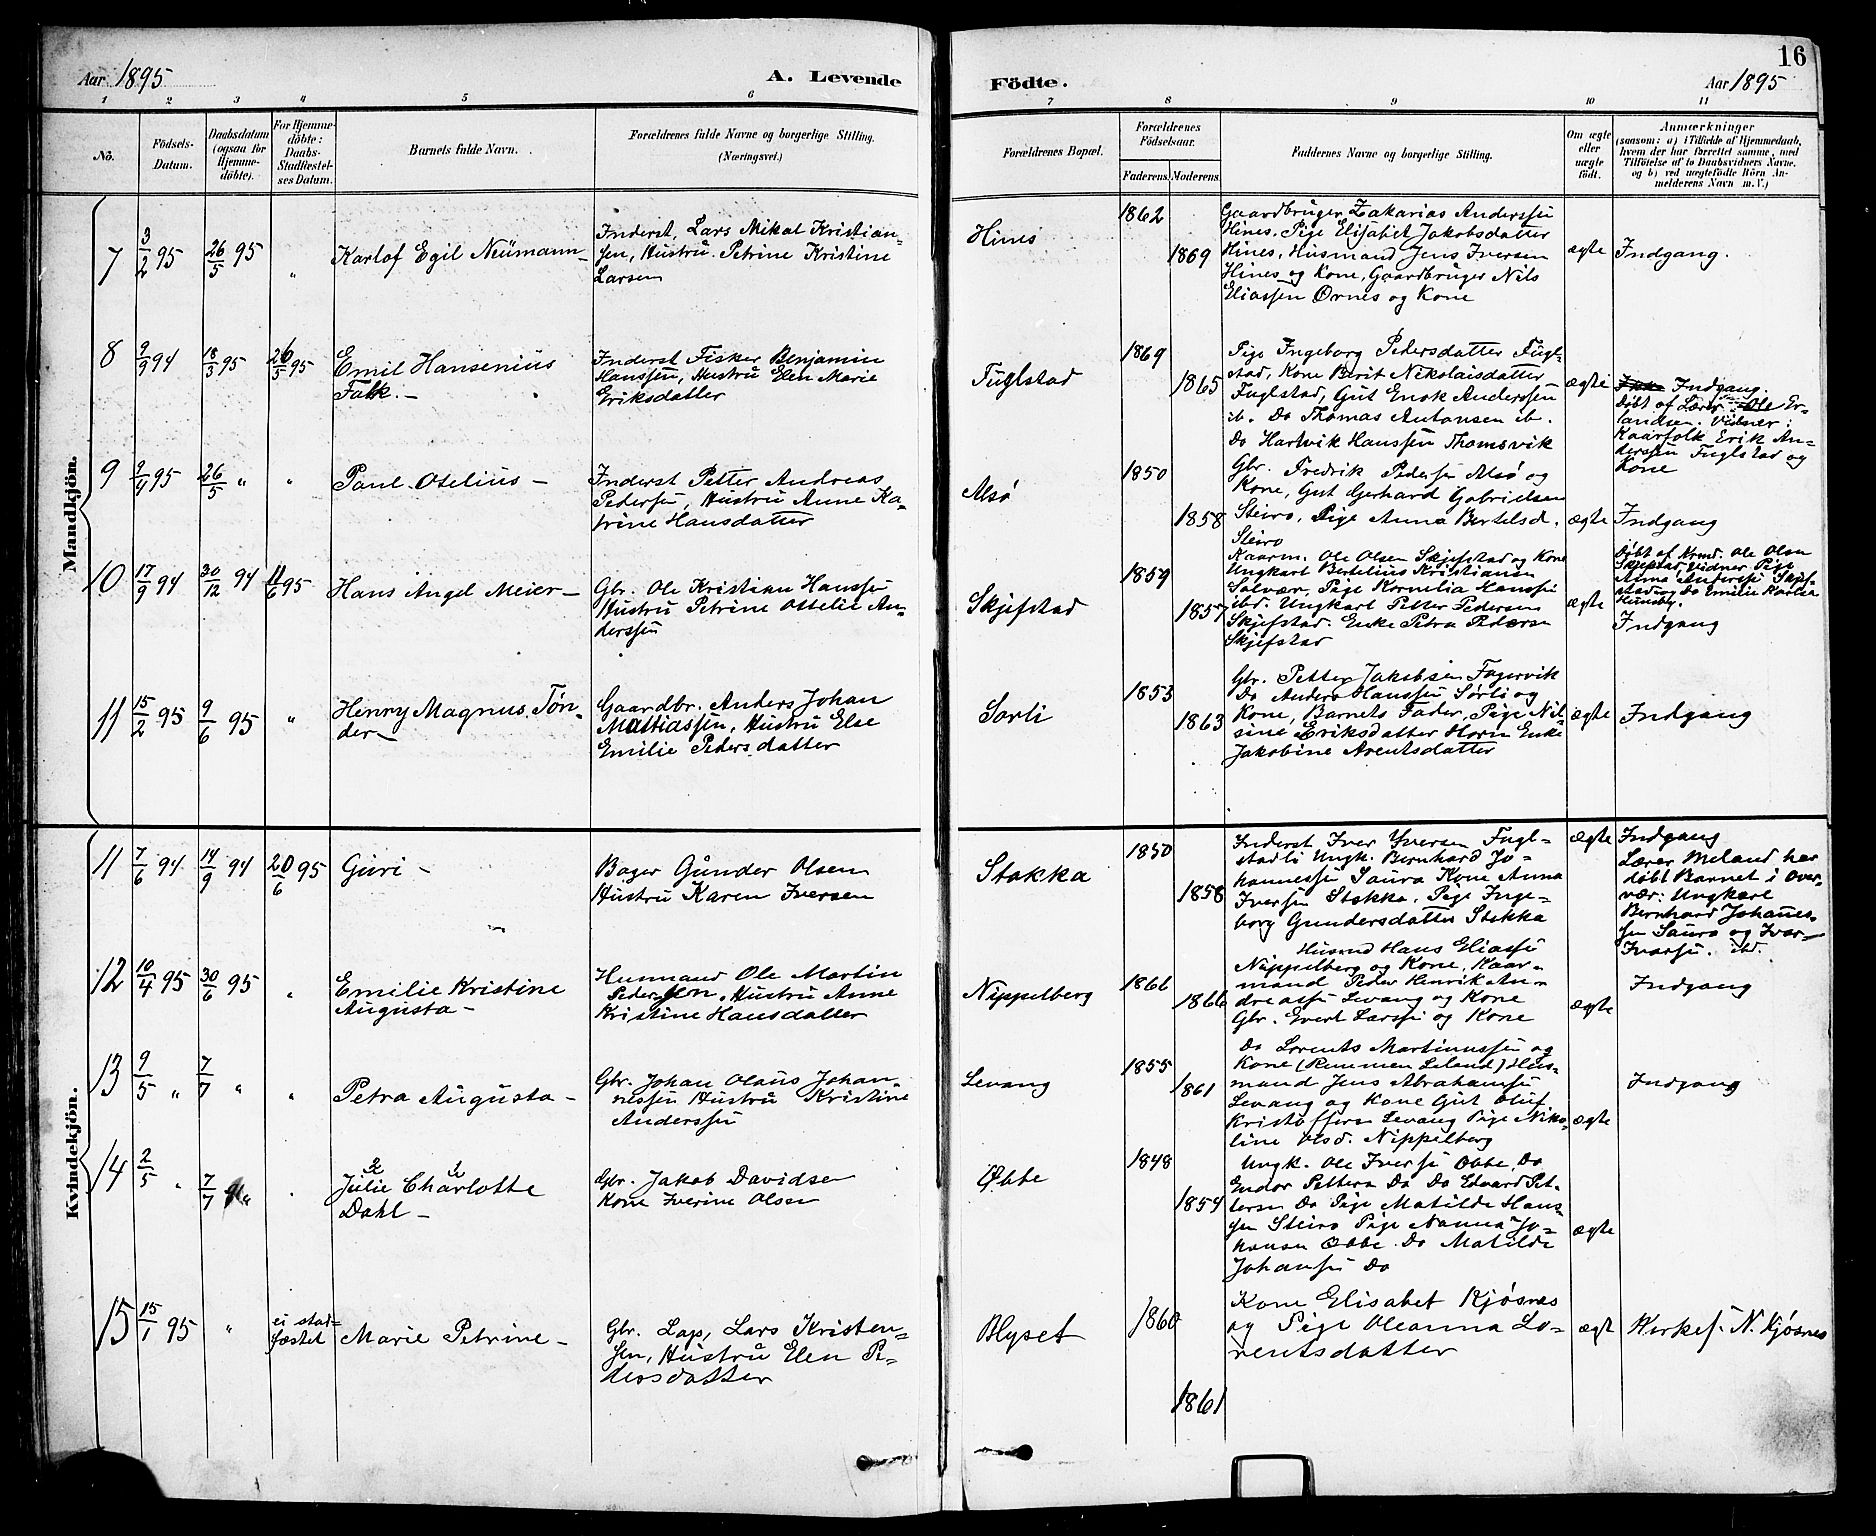 Aar 1895
A. Levende
1 2 3 4 5 6
No.
Födsels-
Datum.
Daabsdatum
(ogsaa for
Hjemme-
döbte).
For Hjemme-
döbte:
Daabs-
Stadfæstel-
ses Datum.
Barnets fulde Navn.
Forældrenes fulde Navne og borgerlige Stilling.
(Næringsvei.)
Mandkjön.
7 3/2 95 26/5 95 "
Karlof Egil Neumann —
Inderst, Lars Mikal Kristian-
sen, Hustru Petrine Kristine
Larsen
8 9/9 94 18/3 95 26/5 95
Emil Hansenius
Falk. —
Inderst Fisker Benjamin
Hanssen, Hustru Elen Marie
Eriksdatter
9 9/4 95 26/5 " "
Paul Otelius —
Inderst Petter Andreas
Pedersen, Hustru Anne Ka-
trine Hansdatter
10 17/9 94 30/12 94 11/6 95
Hans Angel Meier —
Gbr. Ole Kristian Hanssen
Hustru Petrine Ottelie An-
derssen
11 15/2 95 9/6 95 "
Henry Magnus Tön-
der —
Gaardbr. Anders Johan
Mattiassen, Hustru Else
Emilie Pedersdatter
Kvindekjön.
11 7/6 94 14/9 94 20/6 95
Guri —
Bager Gunder Olsen
Hustru Karen Iversen
12 10/4 95 30/6 95 "
Emilie Kristine
Augusta —
Husmand Ole Martin
Pedersen, Hustru Anne
Kristine Hansdatter
13 9/5 " 7/7 " "
Petra Augusta —
Gbr. Johan Olaus Johan-
nessen Hustru Kristine
Anderssen
14 2/5 " 7/7 " "
2 1
Julie Charlotte
Dahl —
Gbr. Jakob Davidsen
Kone Iverine Olsen
15 15/1 95 "
ei stad-
fæstet
Marie Petrine —
Gbr. Lap, Lars Kristen-
sen, Hustru Elen Pe-
dersdatter
16
Födte.
Aar 1895
7 8 9 10 11
Forældrenes Bopæl.
Forældrenes
Födselsaar.
Faderens. Moderens.
Faddernes Navne og borgerlige Stilling.
Om ægte
eller
uægte
født.
Anmærkninger
(saasom: a) i Tilfælde af Hjemmedaab,
hvem der har forrettet samme, med
Tilföielse af to Daabsvidners Navne.
og b) ved uægtefödte Börn An-
melderens Navn m. V.)
Hines
1862
1869
Gaardbruger Zakarias Anderssen
Hines, Pige Elisabet Jakobsdatter
Hines, Husmand Jens Iversen
Hines og Kone, Gaardbruger Nils
Eliassen Ørnes og Kone
ægte
Indgang.
Fuglstad
1869
1865
Pige Ingeborg Pedersdatter Fugl-
stad, Kone Berit Nikolaisdatter
Fuglstad, Gut Enok Anderssen
ib. Do Thomas Antonsen ib.
Do Hartvik Hanssen Thomsvik
ægte
Indgang.
Døbt af Lærer Ole Er-
landsen. Vidner:
Kaarfolk Erik An-
derssen Fuglstad og
Kone
Alsø
1850
1858
Gbr. Fredrik Pedersen Alsø og
Kone, Gut Gerhard Gabrielsen
Steiro, Pige Anna Bertelsd.
Steiro
ægte
Indgang
Skjefstad
1859
1857
Kaarm. Ole Olsen Skjefstad og Kone
Ungkarl Bertelius Kristiansen
Solvær, Pige Kornelia Hanssen
ibd. Ungkarl Petter Pedersen
Skjefstad. Enke Petra Pedersen
Skjefstad
ægte
Døbt af Ole Olsen
Skjefstad, Vidner Pige
Anna Anderssen Skjef-
stad og Do Emilie
Indgang
Sørli
1853
1863
Gbr. Petter Jakobsen Fagervik
Do Anders Hanssen Sørli og
Kone, Barnets Fader, Pige Nil-
sine Eriksdatter Horn Enke
Jakobine Arentsdatter
ægte
Indgang
Stokka
1850
1858
Inderst Iver Iversen Fugl-
stadli Ungk. Bernhard Jo-
hannessen Saura Kone Anna
Iversen Stokka, Pige Inge-
borg Gundersdatter Stokka
ægte
Indgang
Lærer Meland har
døbt Barnet i Over-
vær: Ungkarl
Bernhard Johannes-
sen Saura og Ivar
Ivarsen. ibd.
Nippelberg
1866
1866
Husmd Hans Eliassen
Nippelberg og Kone, Kaar-
mand Peder Henrik An-
dreassen Levang og Kone
Gbr. Evert Larssen og Kone
ægte
Indgang
Levang
1855
1861
Do Lorents Martinussen og
Kone (Remmen Leland) Hus-
mand Jens Abrahamsen
Levang og Kone Gut Oluf
Kristoffersen Levang Pige Niko-
line Olsd. Nippelberg
ægte
Indgang
Øbbe
1848
1854
Ungk. Ole Iversen Øbbe, Do
Endor Pettersen Do Do Edvard Pet-
tersen Do Pige Matilde Hans-
sen Steiro Pige Nanna Jo-
hansen Øbbe Do Matilde
Johansen Do
ægte
Blyset
1860
1861
Kone Elisabet Kjøsnes
og Pige Oleanna Lo-
rentsdatter
ægte
Kirkes. N. Kjøsnes